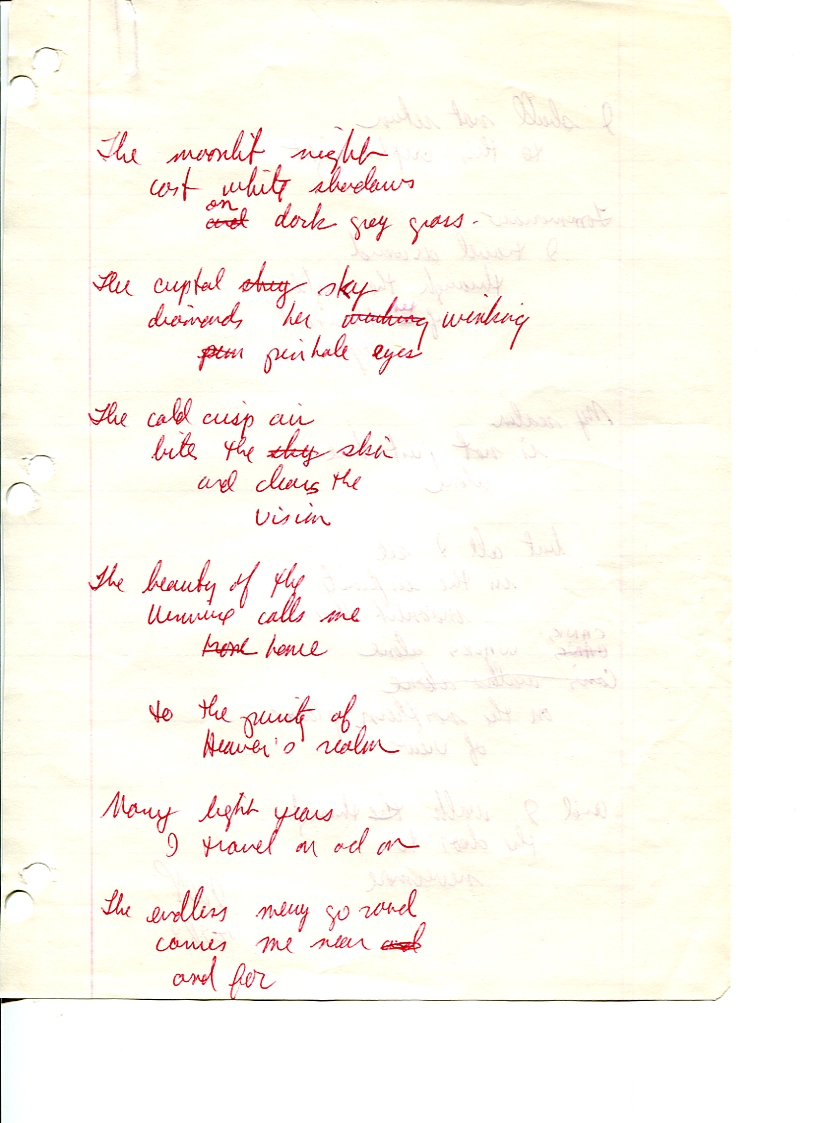 The moonlit night
cast white shadows
on
and dark grey grass.
The cryptal shuy sky
diamonds her winking
pinhole eyes
The cold crisp air
bite the shy skin
and clears the
vision
The beauty of the
Universe calls me
home
to the purity of
Heaven's realm
Many light years
I travel on ad on
The endless merry go round
carries me near and
and far